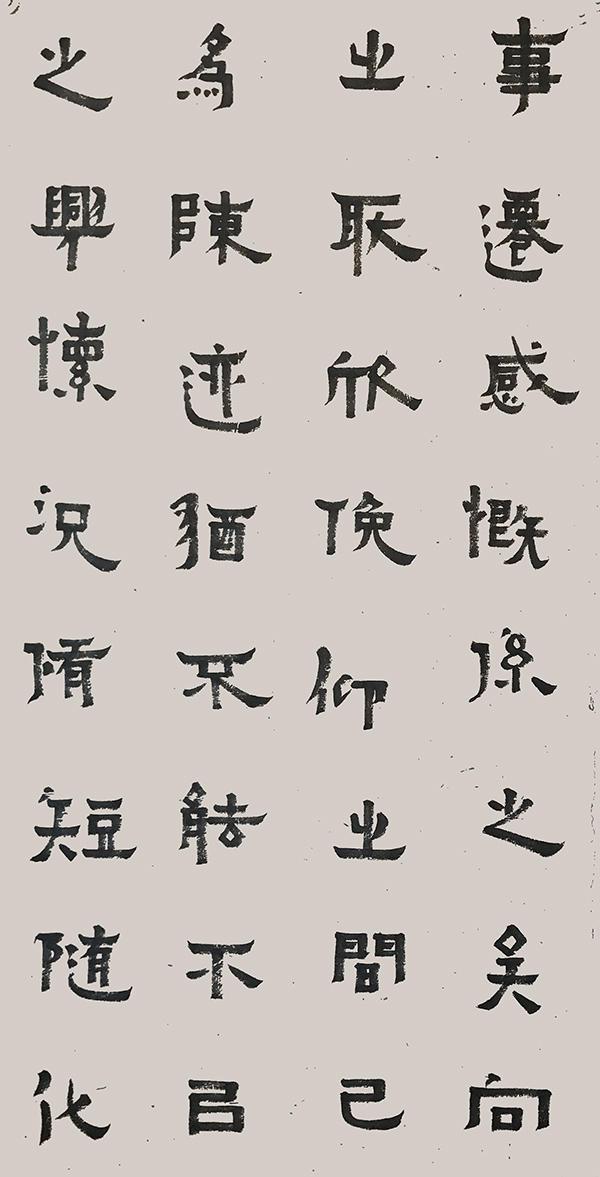 事遷感慨係之矣向
之所欣俛仰之間已
為陳迹猶不能不以
之興懷況脩短随化